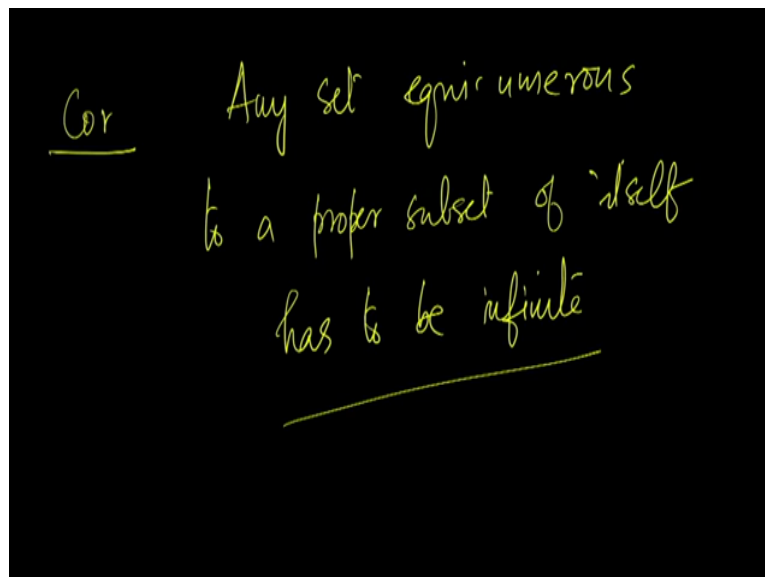 Cor Any set equinumerous
to a proper subset of itself
has to be infinite